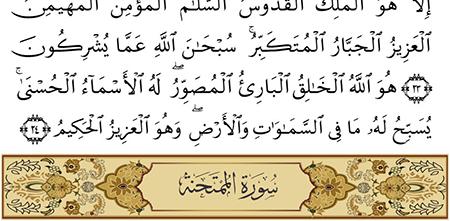 إِلَّا هُوَ الْمَلِكُ الْقُدُّوسُ السَّلَٰمُ الْمُؤْمِنُ الْمُهَيْمِنُ
الْعَزِيزُ الْجَبَّارُ الْمُتَكَبِّرُ ۚ سُبْحَٰنَ اللَّهِ عَمَّا يُشْرِكُونَ
﴿٢٣﴾ هُوَ اللَّهُ الْخَٰلِقُ الْبَارِئُ الْمُصَوِّرُ ۖ لَهُ الْأَسْمَاءُ الْحُسْنَىٰ ۚ
يُسَبِّحُ لَهُۥ مَا فِى السَّمَٰوَٰتِ وَالْأَرْضِ ۖ وَهُوَ الْعَزِيزُ الْحَكِيمُ ﴿٢٤﴾
سُورَةُ الْمُمْتَحَنَةِ